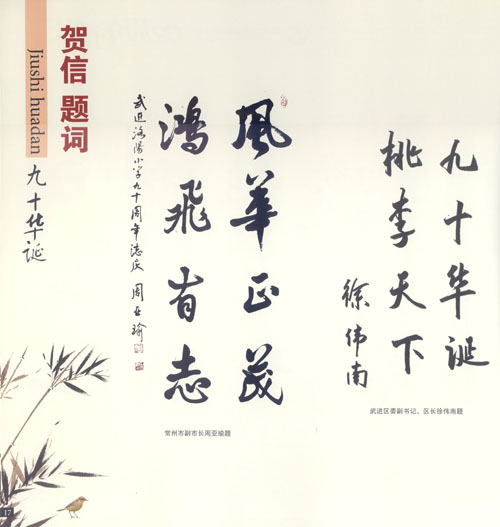 贺信 题词
Jiushi huadan
九十华诞
九十华诞
桃李天下
徐伟南
武进区委副书记、区长徐伟南题
風華正茂
鴻飛有志
武进洛陽小学九十周年誌庆 周亚瑜
常州市副市长周亚瑜题
17